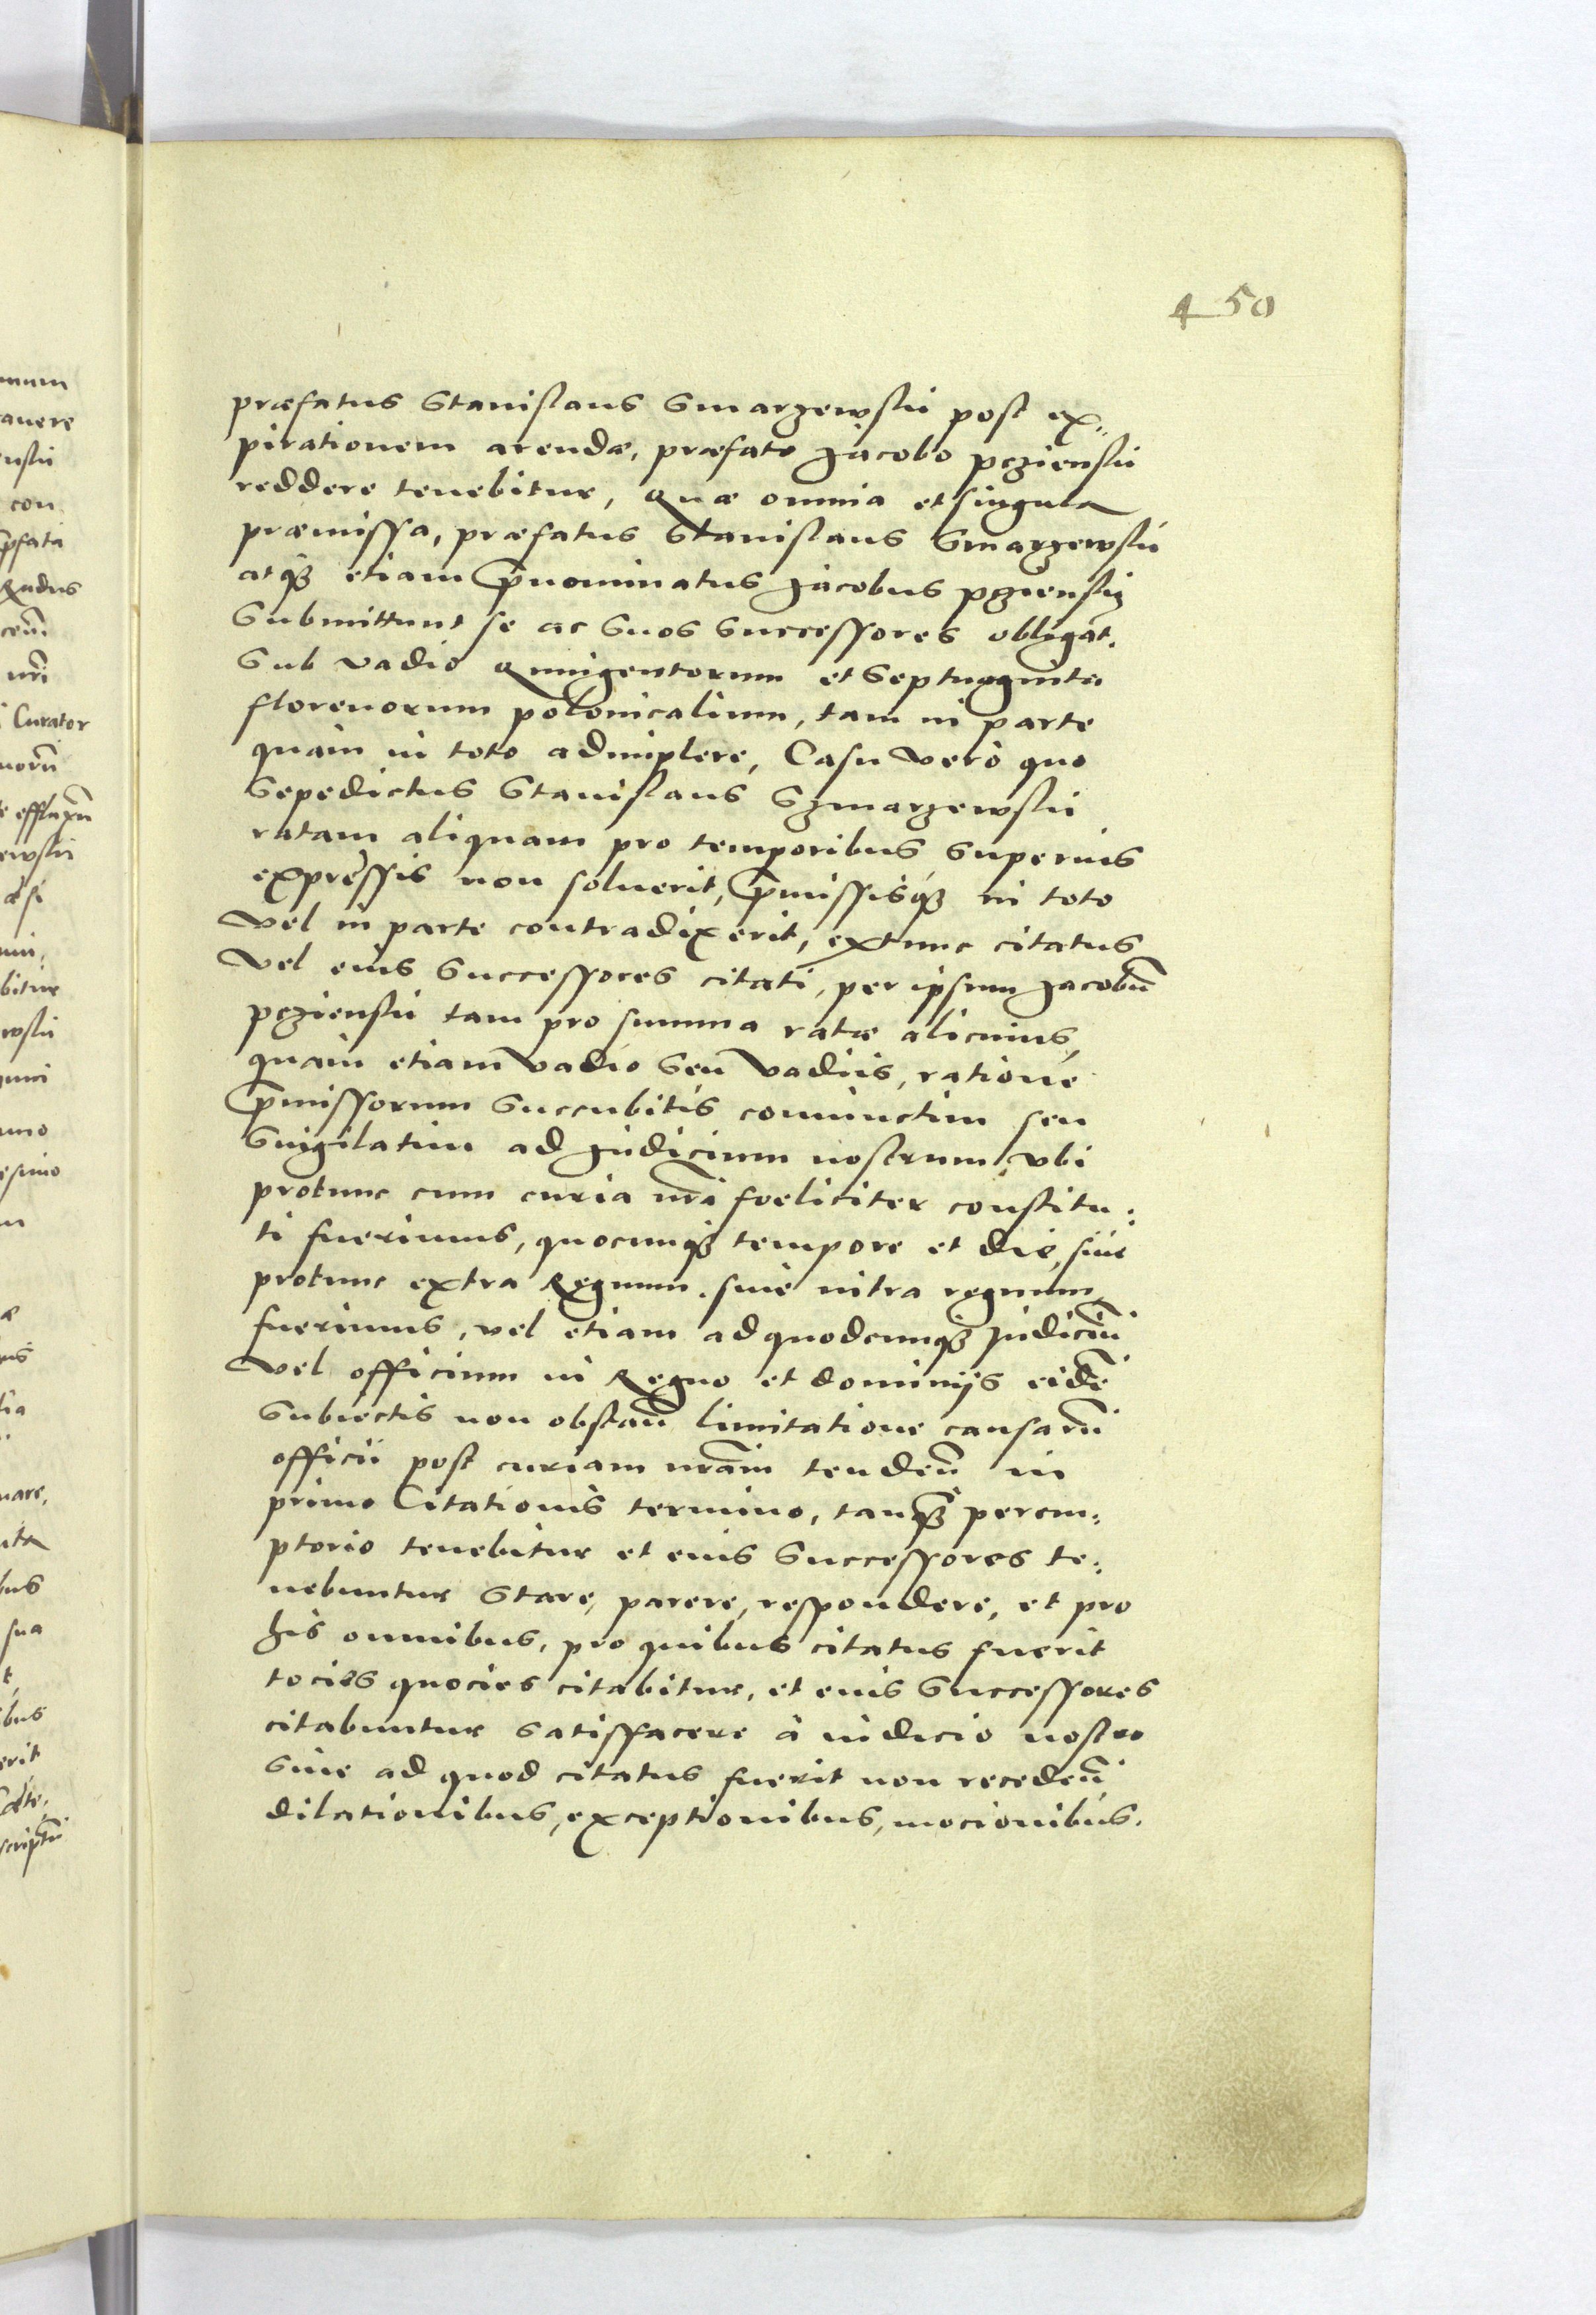 450
præfatus Stanislaus Smarzewskii post ex„
pirationem arendæ, præfato Jacobo pczienskii
reddere tenebitur, Quæ omnia et singula
præmissa, præfatus Stanislaus Smarzewskii
atq₃ etiam p̄nominatus Jacobus pczienskij
Submittunt se ac Suos Successores obligāt.
Sub vadio Quingentorum et Septuaginta
florenorum polonicalium, tam in parte
quam in toto adimplere, Casu verò quo
Sepedictus Stanislaus Szmarzewskii
ratam aliquam pro temporibus Superius
expressis non soluerit, p̄missisq₃ in toto
vel in parte contradixerit, extunc citatus
vel eius Successores citati, per ipsum Jacobū
pczienskii tam pro summa ratæ alicuius,
quam etiam vadio Seu vadiis, ratione
p̄missorum Succubitis coniunctim seu
Singilatim ad Judicium nostrum, vbi
protunc cum curia nr̄a foeliciter constitu:
ti fuerimus, quocunq₃ tempore et die, siue
protunc extra Regnum. siue intra regnum
fuerimus, vel etiam ad quodcunq₃ Judiciū
vel officium in Regno et dominijs eidē
Subiectis non obstan̄ limitatione causarū
officii post curiam nr̄am tenden̄ in
primo Citationis termino, tanq̄₃ perem:
ptorio tenebitur et eius Successores te:
nebuntur Stare, parere, respondere, et pro
his omnibus, pro quibus citatus fuerit
tocies quocies citabitur, et eius Successores
citabuntur satisfacere à iudicio nostro
Siue ad quod citatus fuerit non receden̄
dilationibus, exceptionibus, mocionibus.